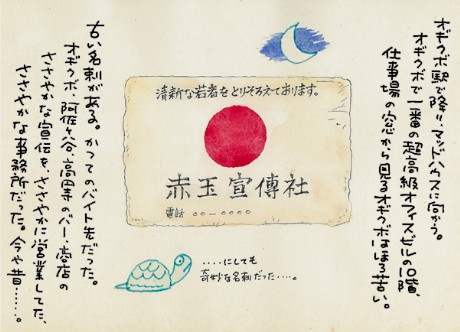 オギクボ駅で降り、マッドハウスに向かう。
オギクボで一番の超高級オフィスビルの10階、
仕事場の窓から見るオギクボはほろ苦い。
清新な若者をとりそろえております。
赤玉宣傳社
電話 〇〇ー〇〇〇〇
‥‥にしても
奇妙な名刺だった‥‥。
古い名刺がある。かつてのバイト先だった。
オギクボ・阿佐ヶ谷・高円寺のバー・商店の
ささやかな宣伝を、ささやかに営業してた、
ささやかな事務所だった。今や昔‥‥‥。